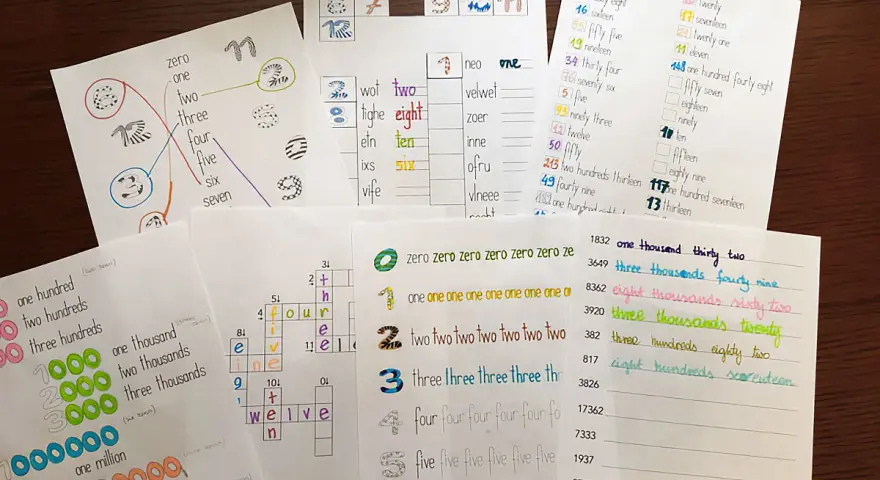 zero
one
two
three
four
five
six
seven
11
2
6
12
3
9
neo one
wot two
tighe eight
etn ten
ixs six
vife
velwet
zoer
inne
ofru
vlneee
16 sixteen
fifty five
19 nineteen
34 thirty four
seventy six
5 five
93 ninety three
12 twelve
50 fifty
213 two hundreds thirteen
49 fourty nine
twenty
17 seventeen
21 twenty one
11 eleven
148 one hundred fourty eight
fifty seven
eighteen
ninety
10 ten
fifteen
eighty nine
117 one hundred seventeen
13 thirteen
one hundred
two hundreds
three hundreds
1000 one thousand
2000 two thousands
3000 three thousands
one million
3↓
2→ t
5↓ h
4→ four
8↓ i r
e v 11→ ele
ine e
9 10↓ 0↓
t
welve
n
0 zero zero zero zero zero ze
1 one one one one one one one
2 two two two two two two two
3 three three three three th
4 four four four four four fo
5 five five five five five
1832 one thousand thirty two
3649 three thousands fourty nine
8362 eight thousands sixty two
3920 three thousands twenty
382 three hundreds eighty two
817 eight hundreds seventeen
3826
17362
7333
1937